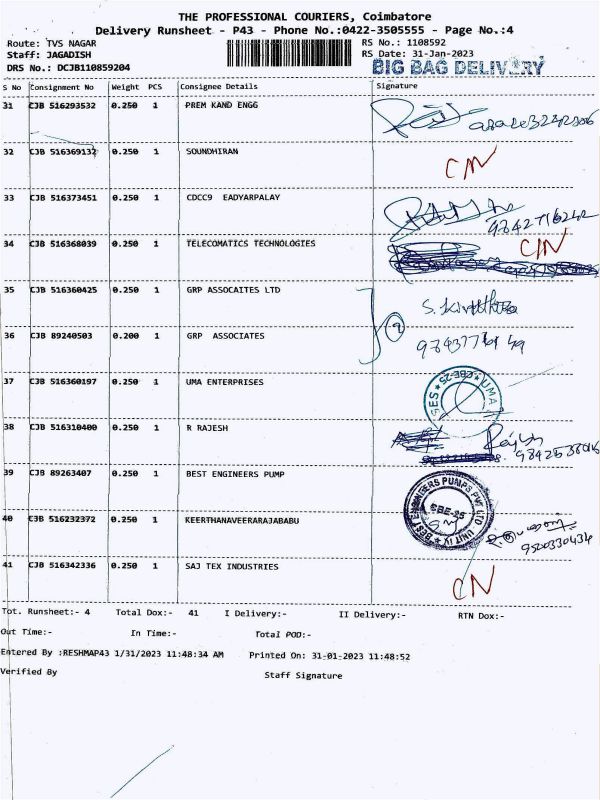 THE PROFESSIONAL COURIERS, Coimbatore
Delivery Runsheet - P43 - Phone No.:0422-3505555 - Page No.:4
Route: TVS NAGAR RS No.: 1108592
Staff: JAGADISH RS Date: 31-Jan-2023
DRS No.: DCJB110859204 BIG BAG DELIVERY
S No Consignment No Weight PCS Consignee Details Signature
31 CJB 516293532 0.250 1 PREM KAND ENGG
32 CJB 516369132 0.250 1 SOUNDHIRAN CN
33 CJB 516373451 0.250 1 CDCC9 EADYARPALAY
9842716242
34 CJB 516368039 0.250 1 TELECOMATICS TECHNOLOGIES CN
35 CJB 516360425 0.250 1 GRP ASSOCAITES LTD
36 CJB 89240503 0.200 1 GRP ASSOCIATES
37 CJB 516360197 0.250 1 UMA ENTERPRISES UMA SES CBE-25
38 CJB 516310400 0.250 1 R RAJESH
39 CJB 89263407 0.250 1 BEST ENGINEERS PUMP BEST ENGINEERS PUMPS PVT LTD UNIT IV CBE-25
40 CJB 516232372 0.250 1 KEERTHANAVEERARAJABABU
41 CJB 516342336 0.250 1 SAJ TEX INDUSTRIES CN
Tot. Runsheet:- 4 Total Dox:- 41 I Delivery:- II Delivery:- RTN Dox:-
Out Time:- In Time:- Total POD:-
Entered By :RESHMAP43 1/31/2023 11:48:34 AM Printed On: 31-01-2023 11:48:52
Verified By Staff Signature